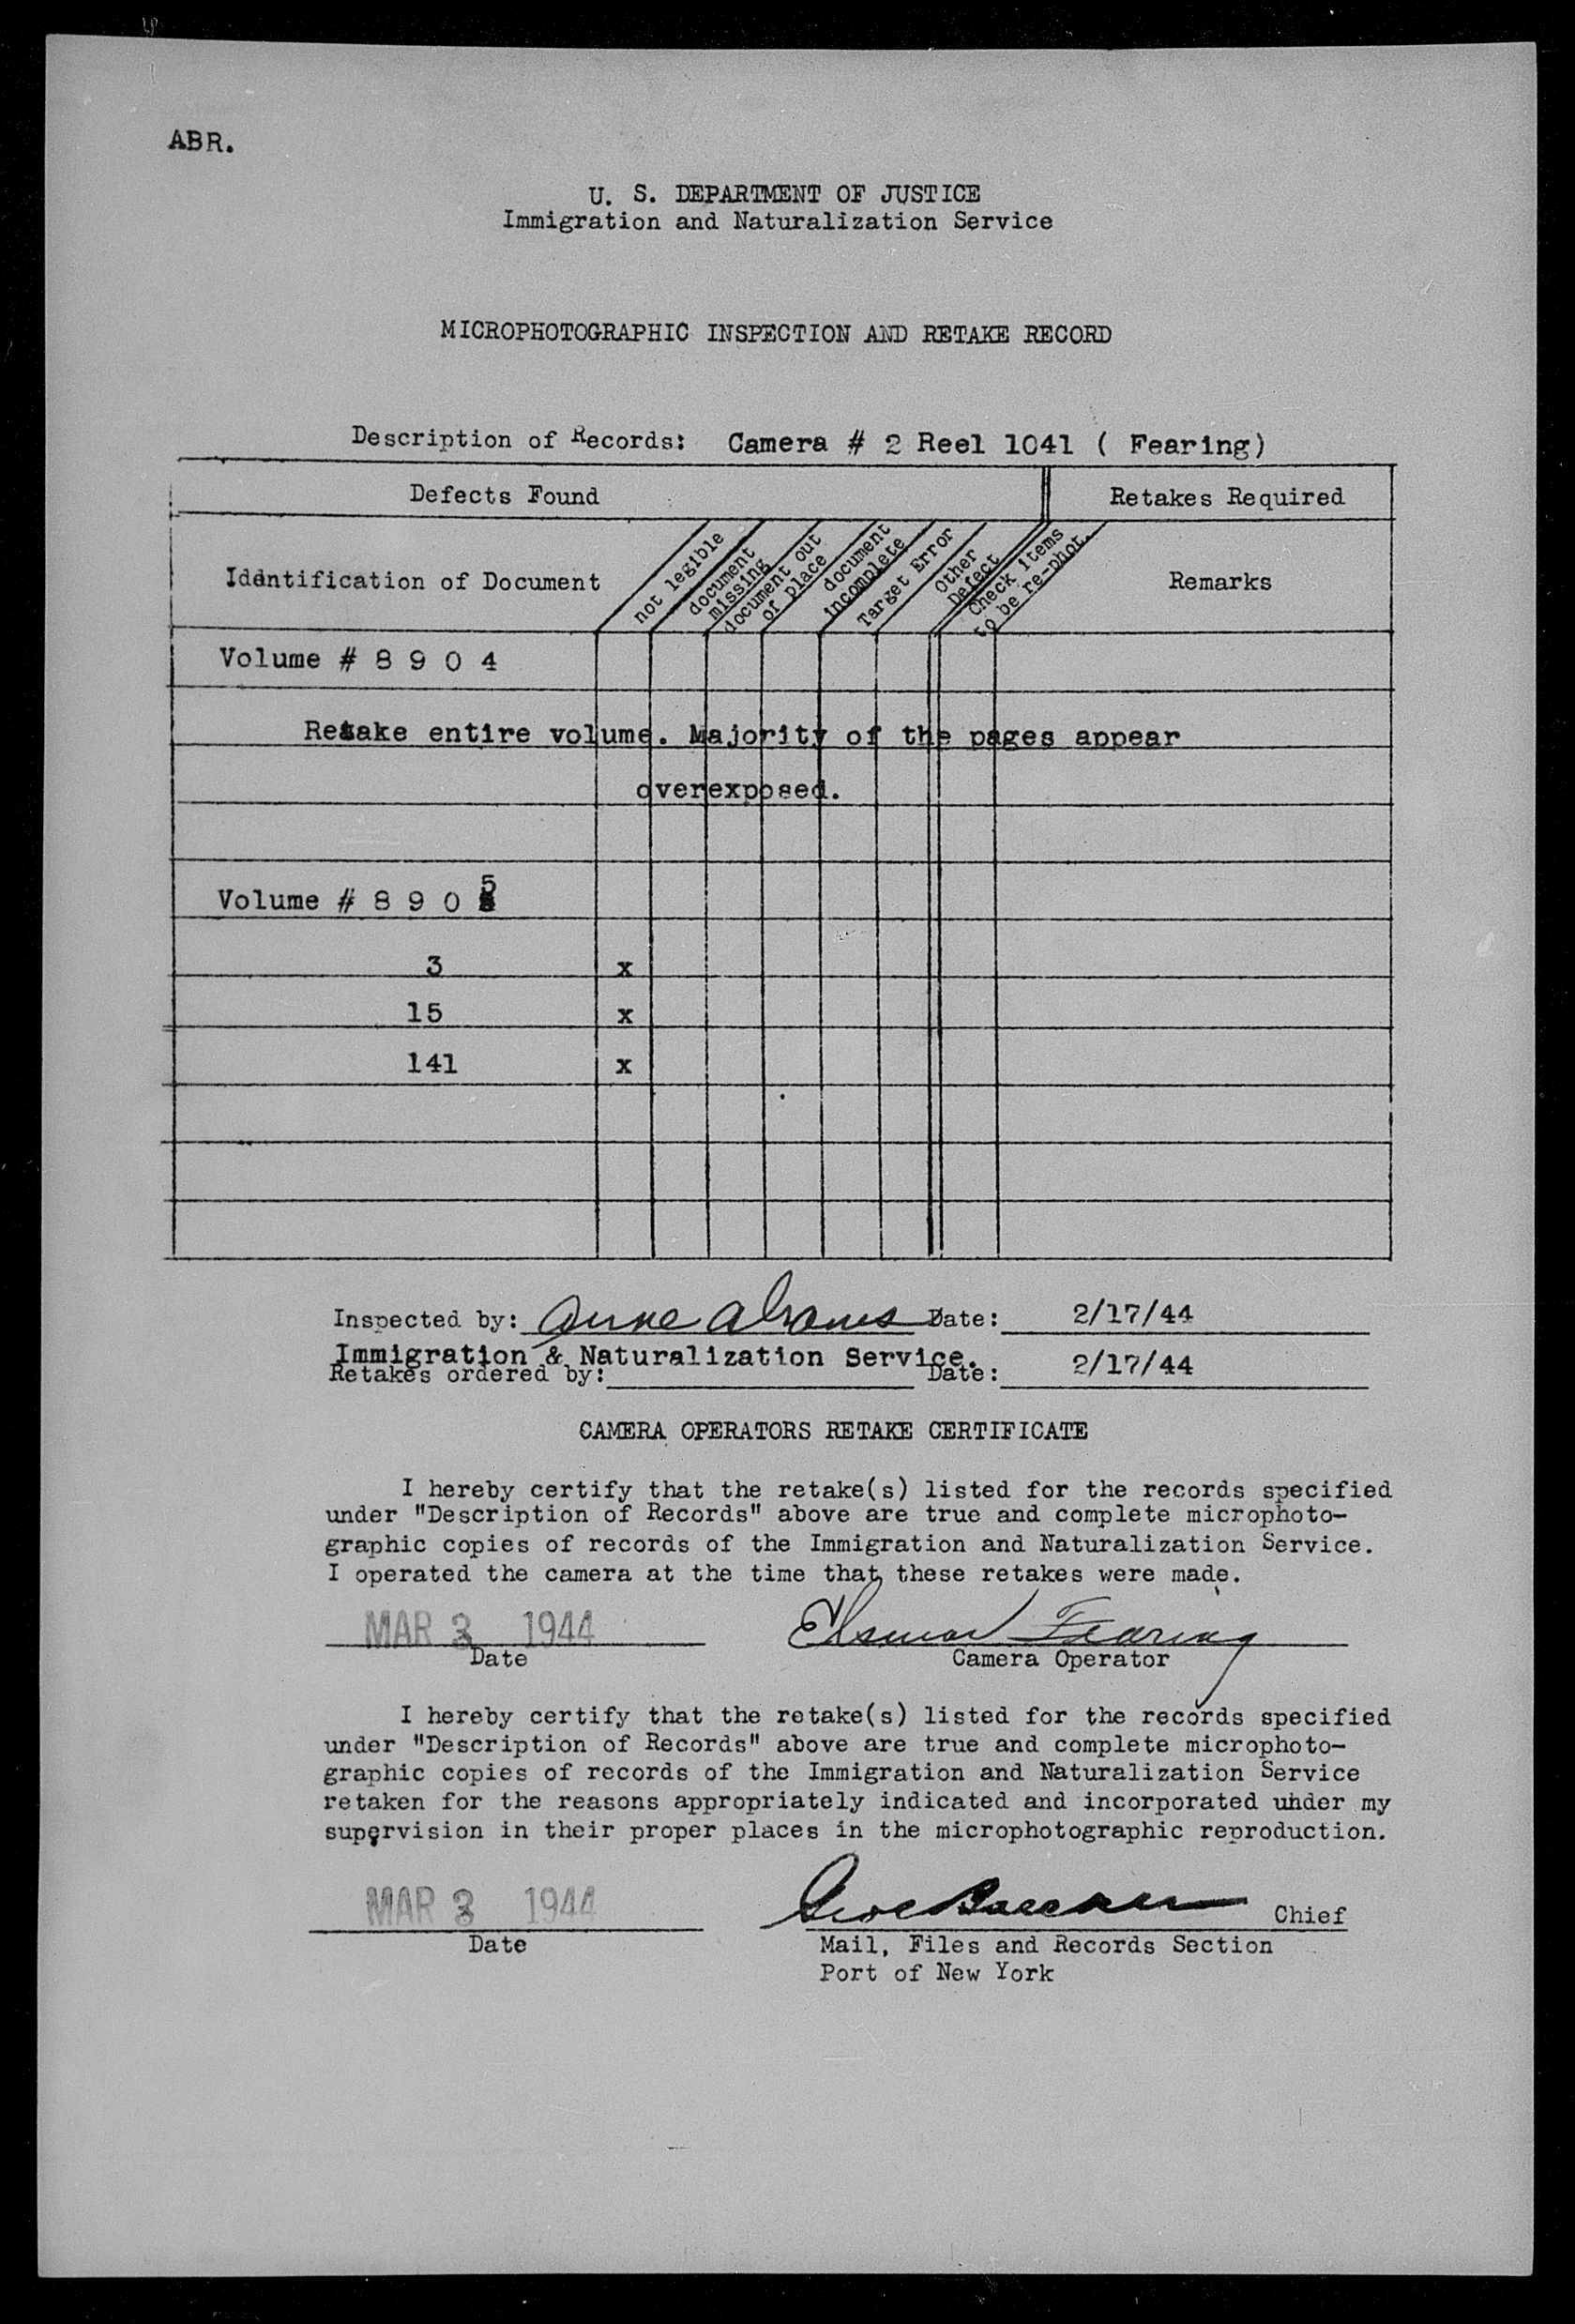 ABR.
U. S. DEPARTMENT OF JUSTICE
Immigration and Naturalization Service
MICROPHOTOGRAPHIC INSPECTION AND RETAKE RECORD
Description of Records: Camera # 2 Reel 1041 ( Fearing)
Defects Found
Retakes Required
Identification of Document
not legible
document missing
document out of place
document incomplete
Target Error
Other Defect
Check items to be re-phot.
Remarks
Volume # 8 9 0 4
Retake entire volume. Majority of the pages appear
overexposed.
Volume # 8 9 0 5
3 x
15 x
141 x
Inspected by: Anne Abrams Date: 2/17/44
Immigration & Naturalization Service.
Retakes ordered by: Date: 2/17/44
CAMERA OPERATORS RETAKE CERTIFICATE
I hereby certify that the retake(s) listed for the records specified
under "Description of Records" above are true and complete microphoto-
graphic copies of records of the Immigration and Naturalization Service.
I operated the camera at the time that these retakes were made.
MAR 3 1944 Fearing
Date Camera Operator
I hereby certify that the retake(s) listed for the records specified
under "Description of Records" above are true and complete microphoto-
graphic copies of records of the Immigration and Naturalization Service
retaken for the reasons appropriately indicated and incorporated under my
supervision in their proper places in the microphotographic reproduction.
MAR 3 1944 Chief
Date Mail, Files and Records Section
Port of New York